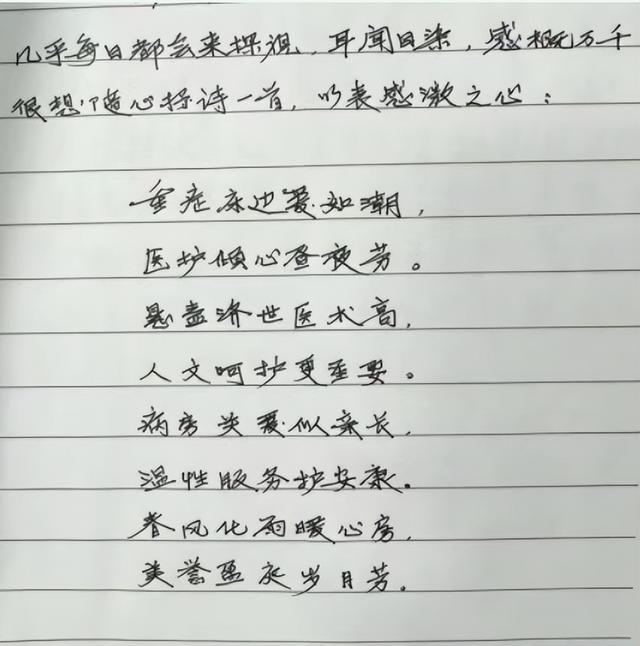 几乎每日都会来探视,耳闻目染,感概万千
很想随心抒诗一首,以表感激之心:
重症床边爱如潮,
医护倾心昼夜劳。
悬壶济世医术高,
人文呵护更重要。
病房关爱似亲长,
温性服务护安康。
春风化雨暖心房,
美誉盈永岁月芳。